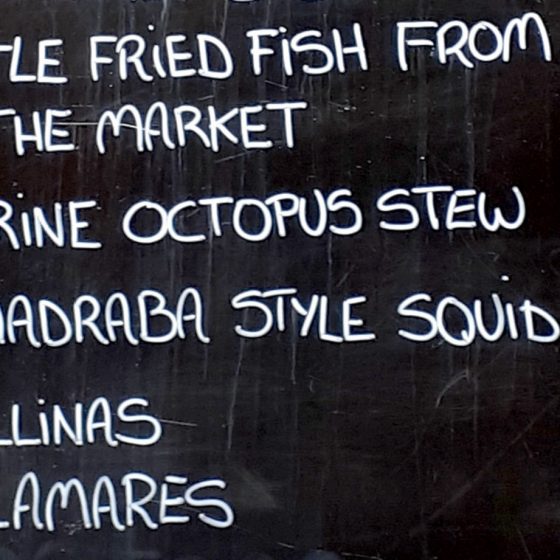 TLE FRIED FISH FROM
THE MARKET
RINE OCTOPUS STEW
ADRABA STYLE SQUID
LLINAS
LAMARES